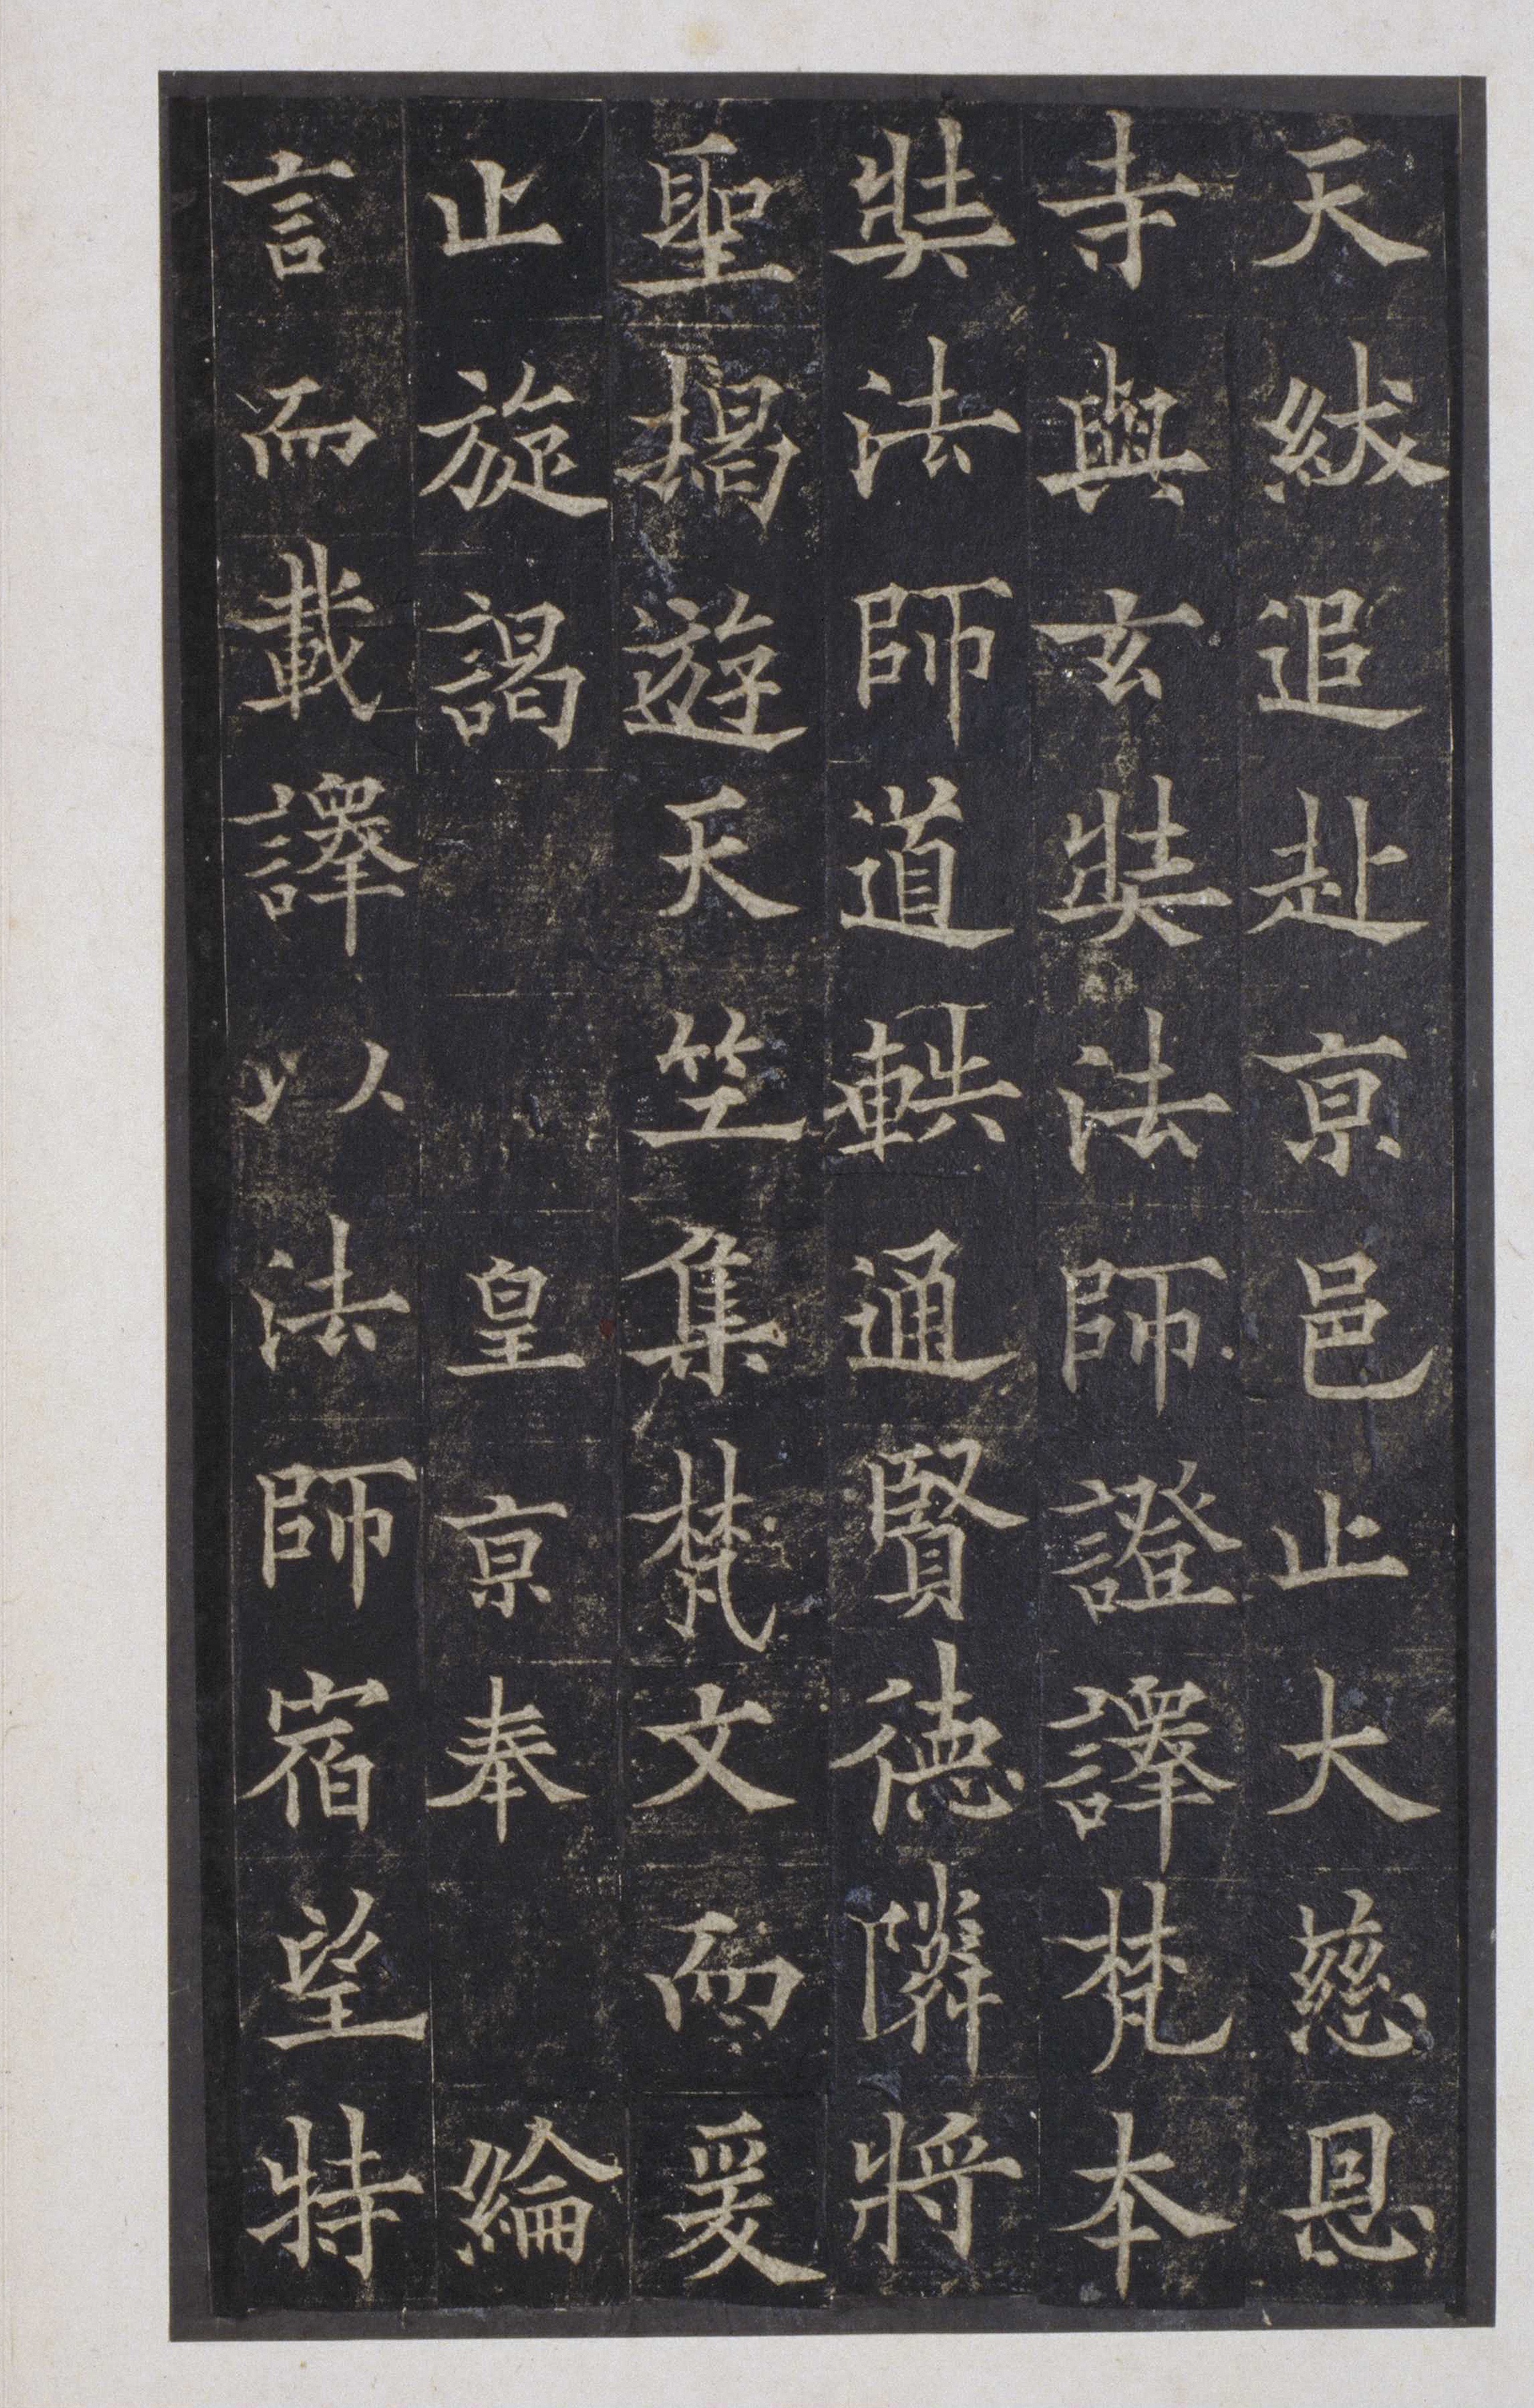 天紱追赴京邑止大慈恩
寺與玄奘法師證譯梵本
奘法師道軼通賢德隣將
聖揭遊天竺集梵文而爰
止旋謁皇京奉綸
言而載譯以法師宿望特